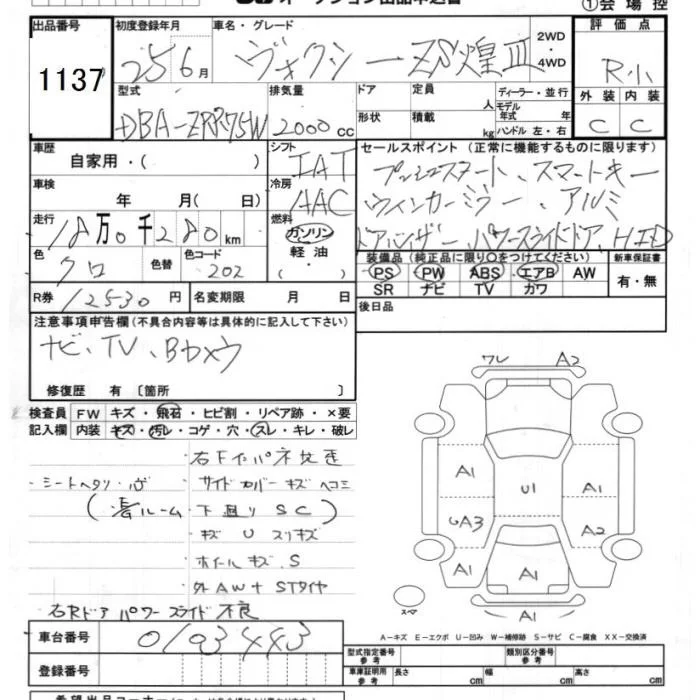 ①会場控
出品番号
1137
初度登録年月
25 6月
車名・グレード
ヴォクシー ZS煌Ⅲ
2WD
・
4WD
評価点
R小
外装 内装
C C
型式
DBA-ZRR75W
排気量
2000cc
ドア
定員
人
形状
積載
kg
ディーラー・並行
モデル年式 年
ハンドル 左・右
車歴
自家用・( )
シフト
IAT
車検
年 月( 日)
冷房
AAC
走行
18万0千280km
燃料
ガソリン
軽油
色
クロ
色替
色コード
202
R券
12530円
名変期限 月 日
セールスポイント(正常に機能するものに限ります)
プッシュスタート、スマートキー
ウィンカーミラー、アルミ
パワースライドドア、HID
装備品(純正品に限り○をつけてください)
PS PW ABS エアB AW
SR ナビ TV カワ
新車保証書
有・無
後日品
注意事項申告欄(不具合内容等は具体的に記入して下さい)
ナビ、TV、Bカメラ
修復歴 有〔箇所 〕
検査員
記入欄
FW キズ・飛石・ヒビ割・リペア跡・×要
内装 キズ・汚レ・コゲ・穴・スレ・キレ・破レ
シートヘタリ
サイドカバーキズ ヘコミ
ルーム
下廻りSC
キズ U スリキズ
ホイールキズ.S
外AW+STタイヤ
右Rドアパワースライド不良
車台番号
0193443
登録番号
ワレ
A2
A1
A1
U1
UA3
A2
A1
A1
A1
A1
スペア
A-キズ E-エクボ U-凹み W-補修跡 S-サビ C-腐食 XX-交換済
型式指定番号
参考
類別区分番号
参考
車庫証明用
参考
長さ cm
幅 cm
高さ cm